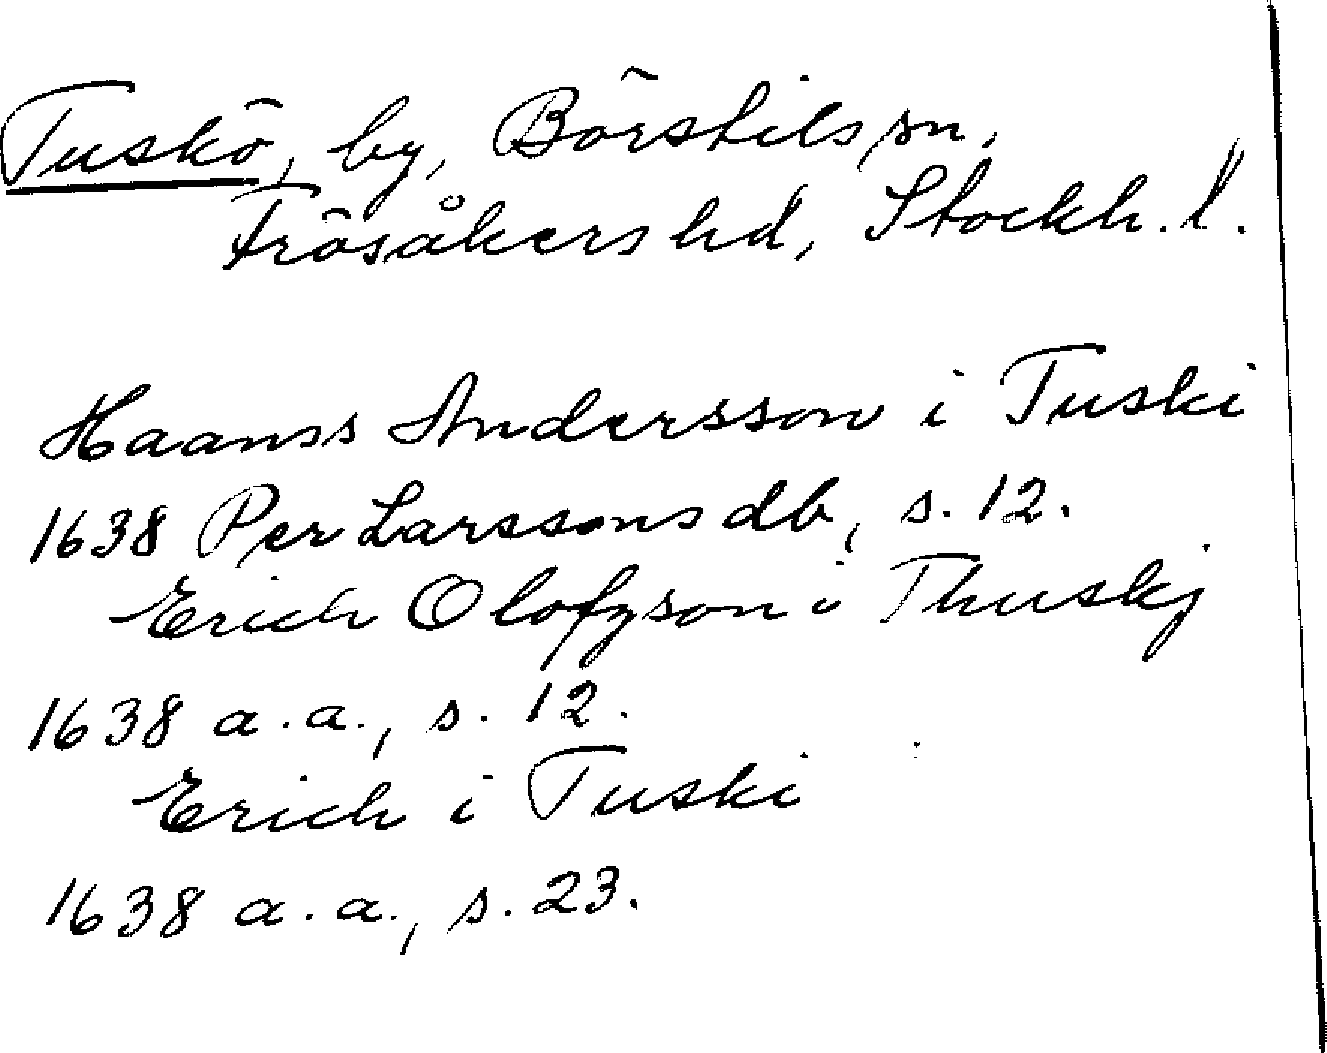 Tuskö, by, Börstils sn,
Frösåkers hd, Stockh. l.
Haanss Andersson i Tuski
1638 Per Larssons db, s. 12.
Erich Olofzson i Thuskj
1638 a.a., s. 12.
Erich i Tuski
1638 a.a., s. 23.